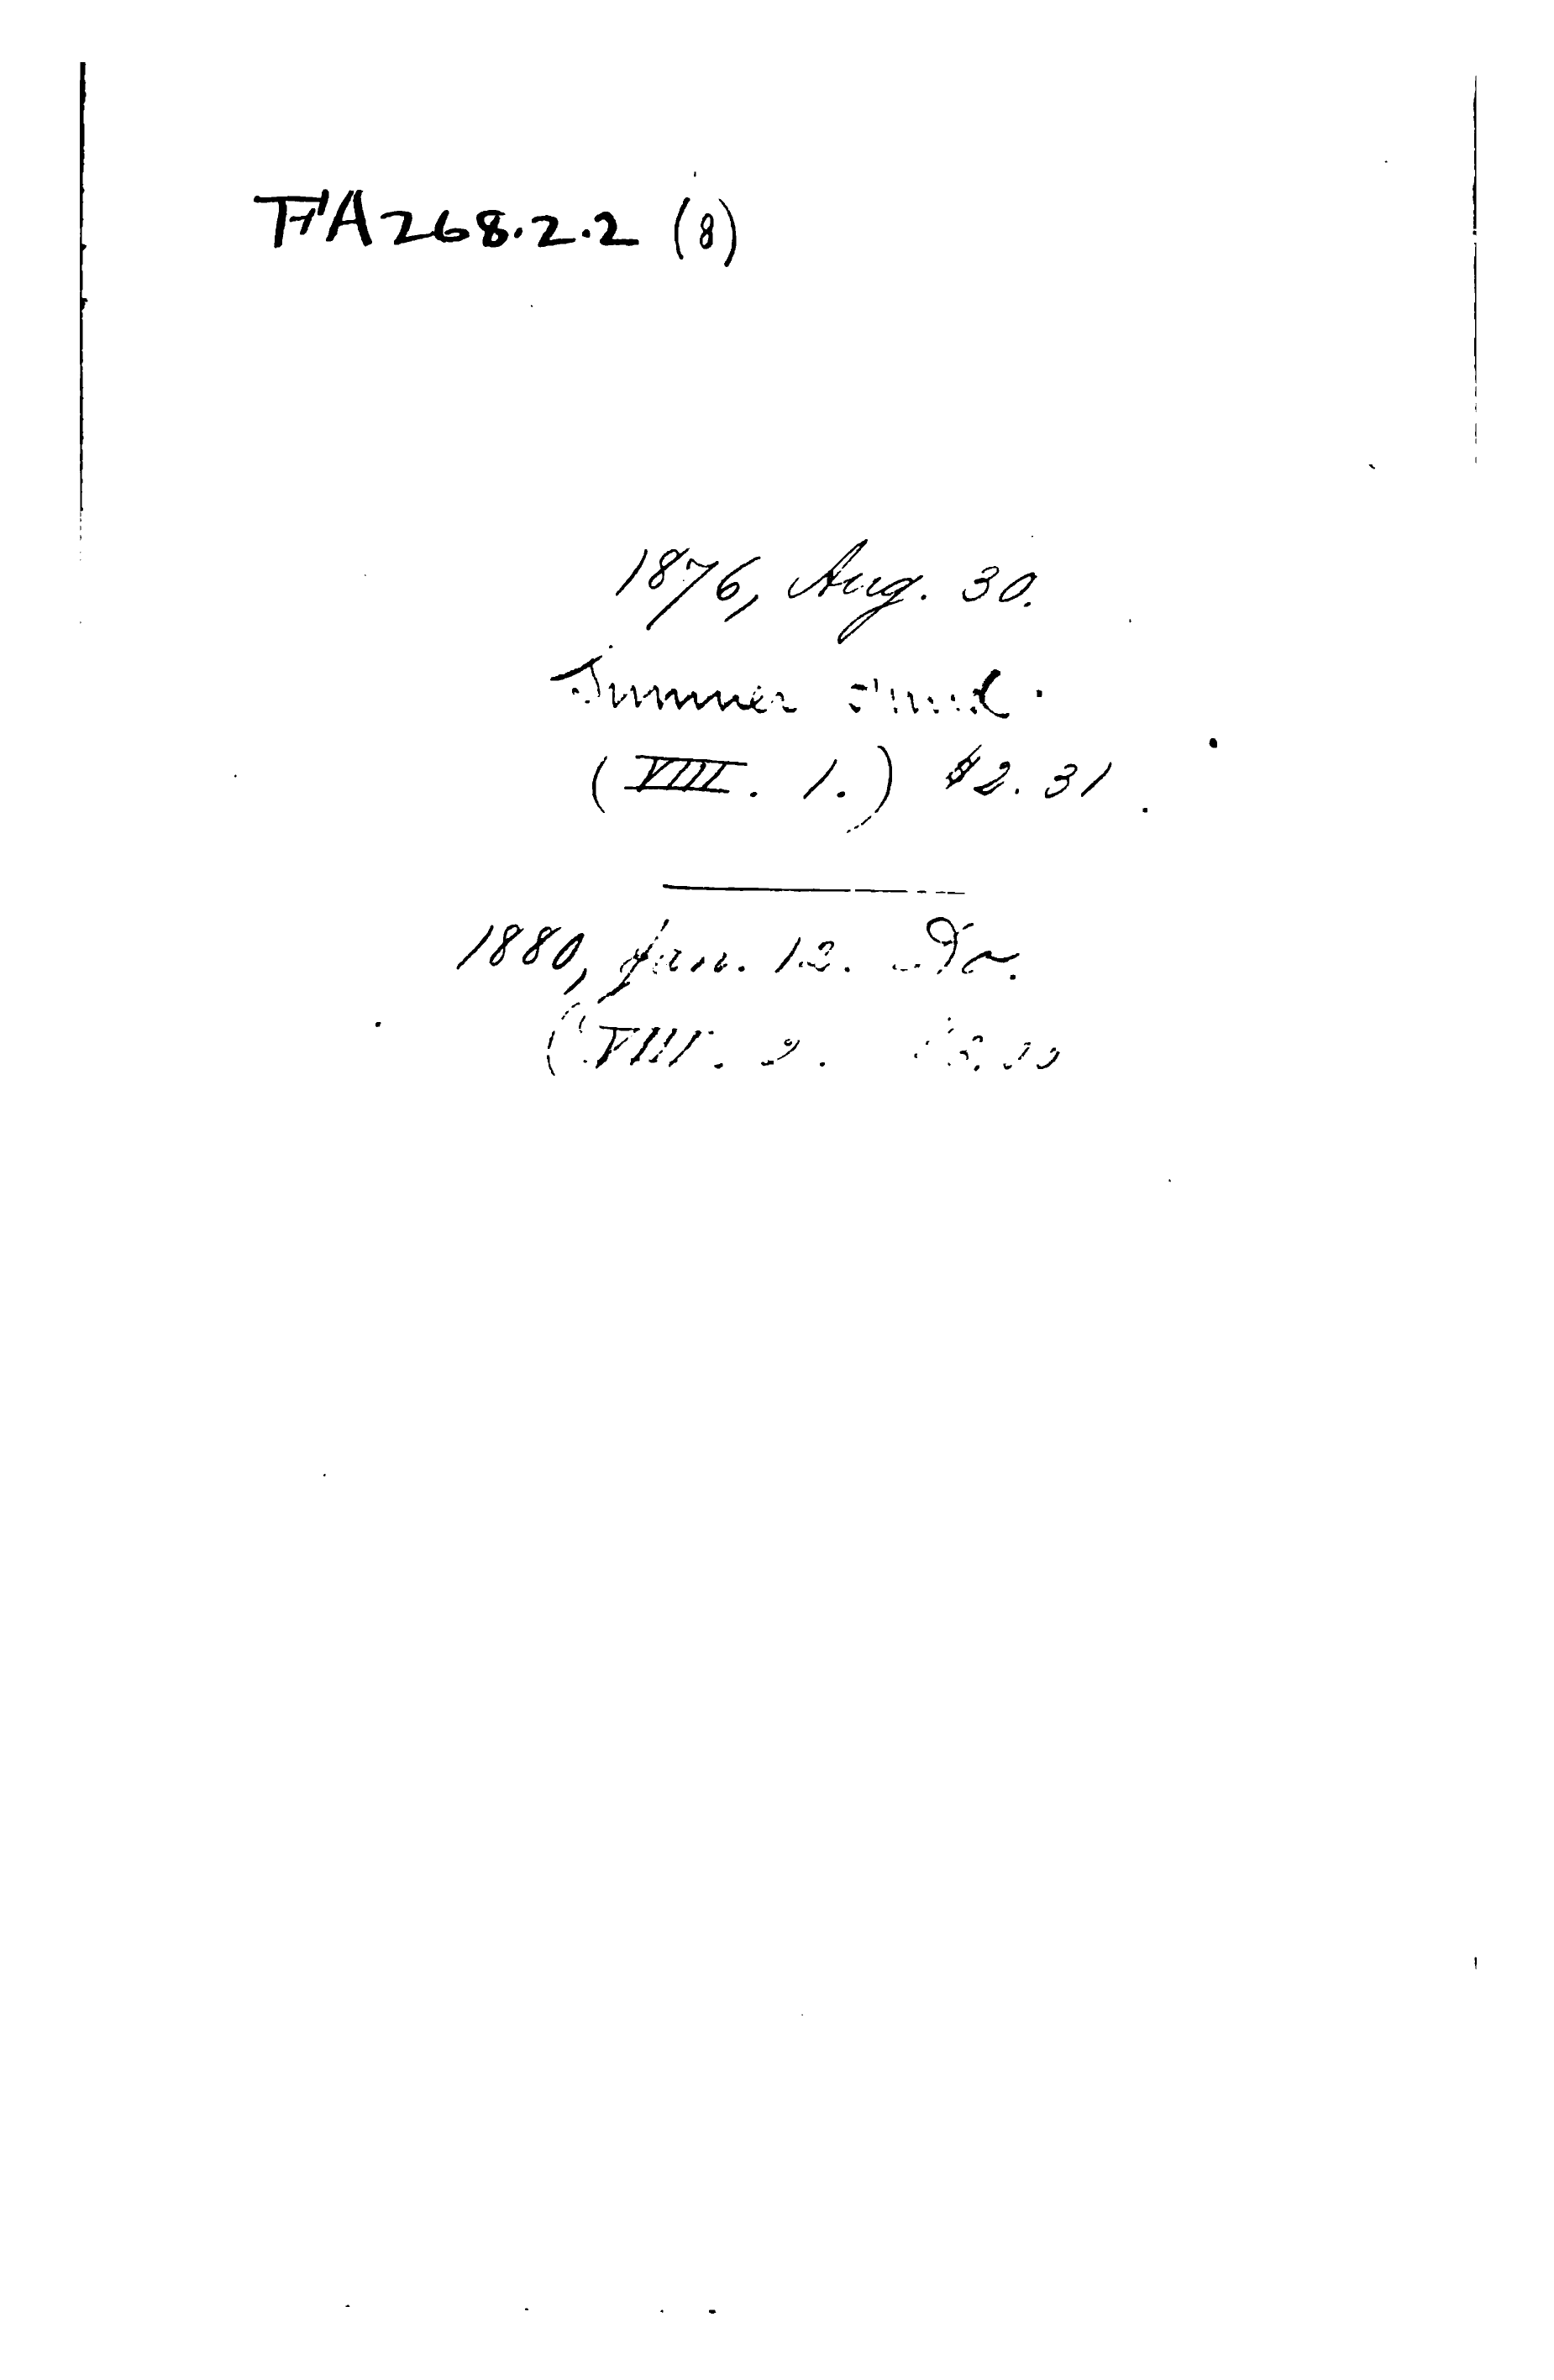 FA268.2.2 (8)
1876, Aug. 30.
Sumner Fund.
(VIII. 1.) $2.31.
1880, Jan. 12. Do.
(VIII. 2.